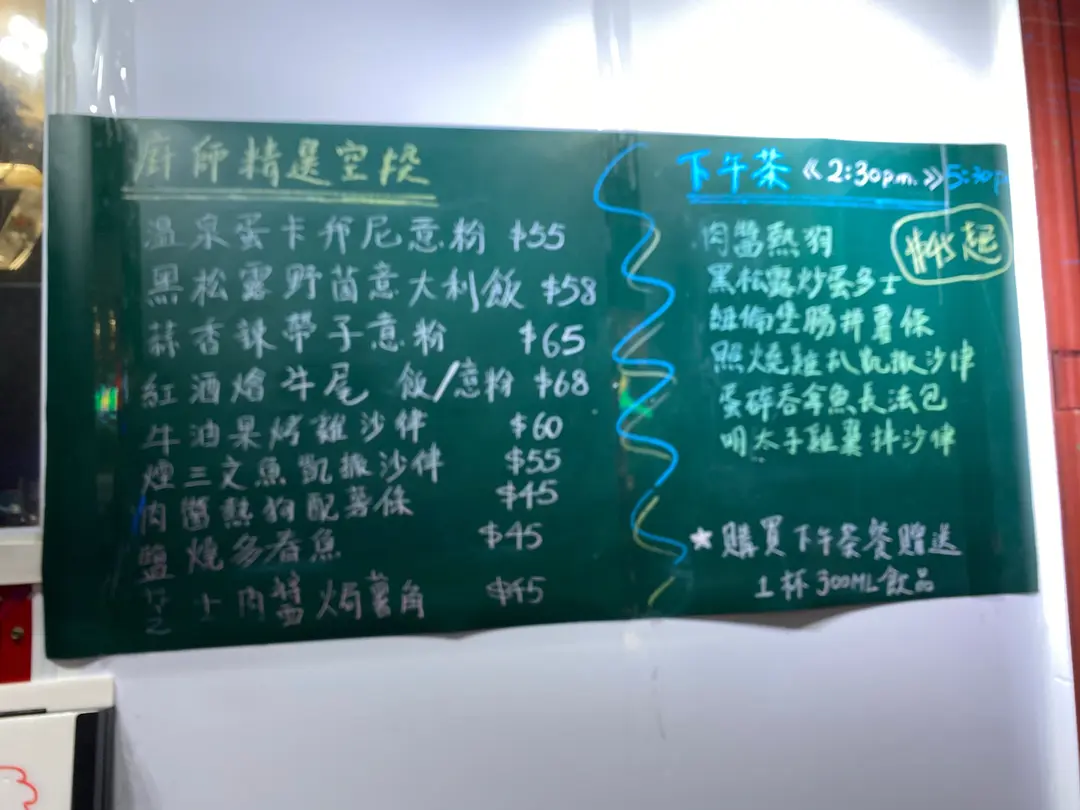 廚師精選空投
溫泉蛋卡邦尼意粉 $55
黑松露野菌意大利飯 $58
蒜香辣帶子意粉 $65
紅酒燴牛尾 飯/意粉 $68
牛油果烤雞沙律 $60
煙三文魚凱撒沙律 $55
肉醬熱狗配薯條 $45
鹽燒多春魚 $45
芝士肉醬焗薯角 $45
下午茶 《2:30p.m.》5:30p
$45起
肉醬熱狗
黑松露炒蛋多士
紐倫堡腸拼薯條
照燒雞扒凱撒沙律
蛋碎吞拿魚長法包
明太子雞翼拼沙律
★購買下午茶餐贈送
1杯300ML飲品